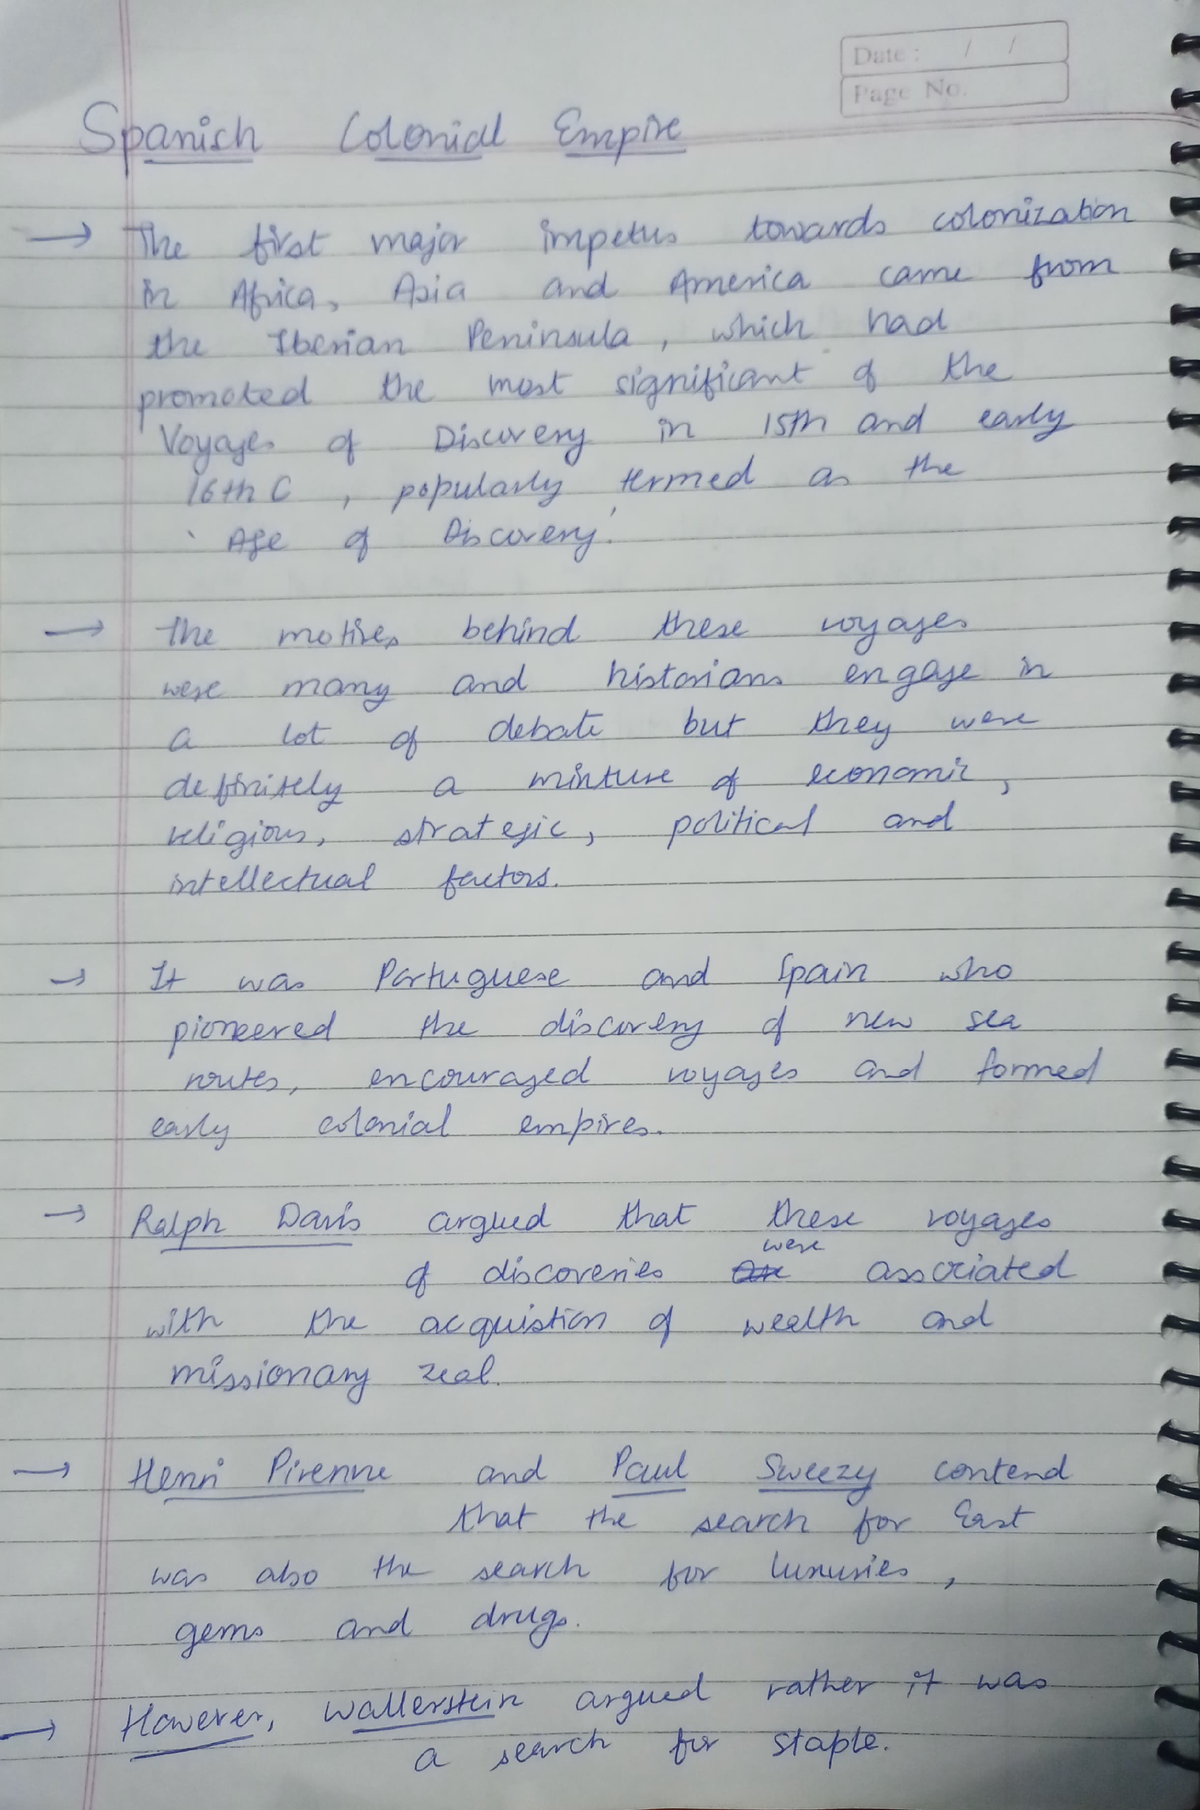 Date : / /
Page No.
Spanish Colonial Empire
→ The first major impetus towards colonization
in Africa, Asia and America came from
the Iberian Peninsula, which had
promoted the most significant of the
Voyages of Discovery in 15th and early
16th C, popularly termed as the
'Age of Discovery.'
→ The motives behind these voyages
were many and historians engage in
a lot of debate but they were
definitely a mixture of economic,
religious, strategic, political and
intellectual factors.
→ It was Portuguese and Spain who
pioneered the discovery of new sea
routes, encouraged voyages and formed
early colonial empires.
→ Ralph Davis argued that these voyages
were
of discoveries are associated
with the acquistion of wealth and
missionary zeal.
→ Henri Pirenne and Paul Sweezy contend
that the search for East
was also the search for luxuries,
gems and drugs.
→ However, Wallerstein argued rather it was
a search for staple.